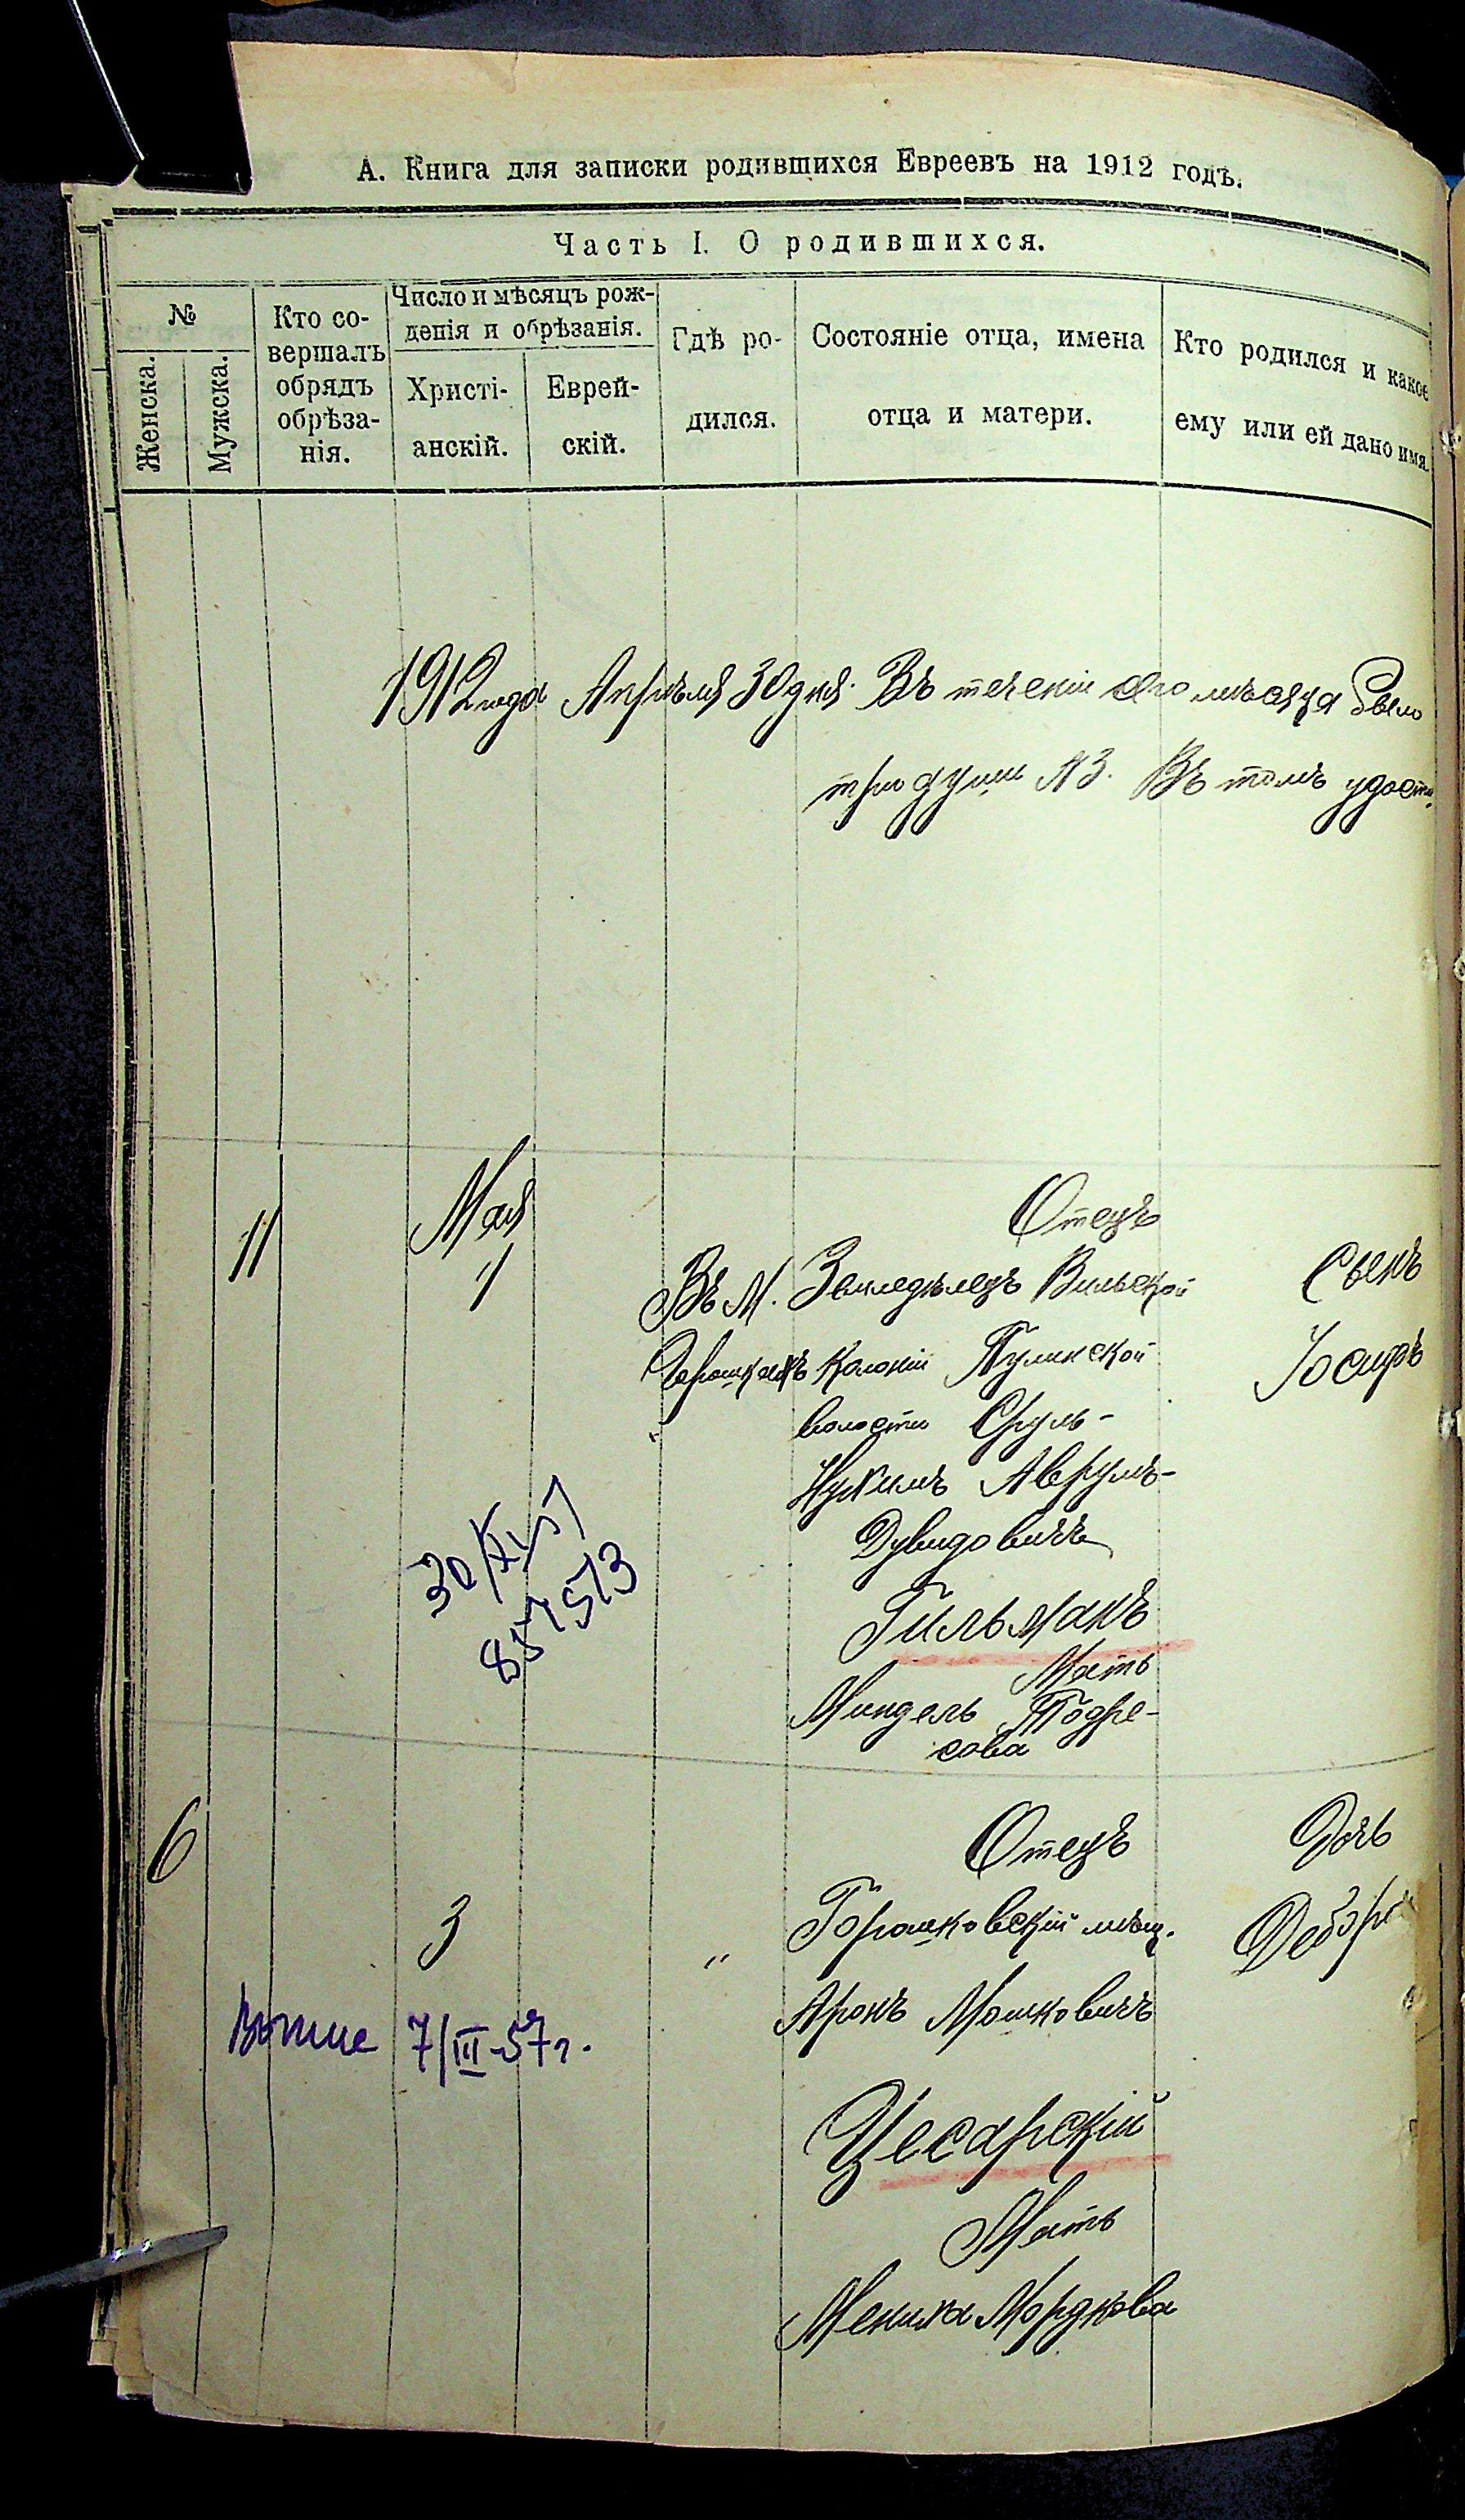 А. Книга для записки родившихся Евреевъ на 1912 годъ.
Часть I. О родившихся.
№
Женска.
Мужска.
Кто со-
вершалъ
обрядъ
обрѣза-
нія.
Число и мѣсяцъ рож-
денія и обрѣзанія.
Христі-
анскій.
Еврей-
скій.
Гдѣ ро-
дился.
Состояніе отца, имена
отца и матери.
Кто родился и какое
ему или ей дано имя.
1912 года Апрѣля 30 дня. Въ теченіи сего мѣсяца было
три души №3. Въ томъ удосто
11
Мая
1
Въ М.
Горошкахъ
"
Отецъ
Земледѣлецъ Вильской
Колоніи Пулинской
волости Сруль-
Нухимъ Аврумъ-
Дувидовичъ
Гильманъ
Мать
Миндель
сова
Сынъ
Іосифъ
857573
6
3
"
Отецъ
Горошковскій мѣщ.
Аронъ Мошковичъ
Цесарскій
Мать
Мениха Мордкова
Дочь
7/III-57г.